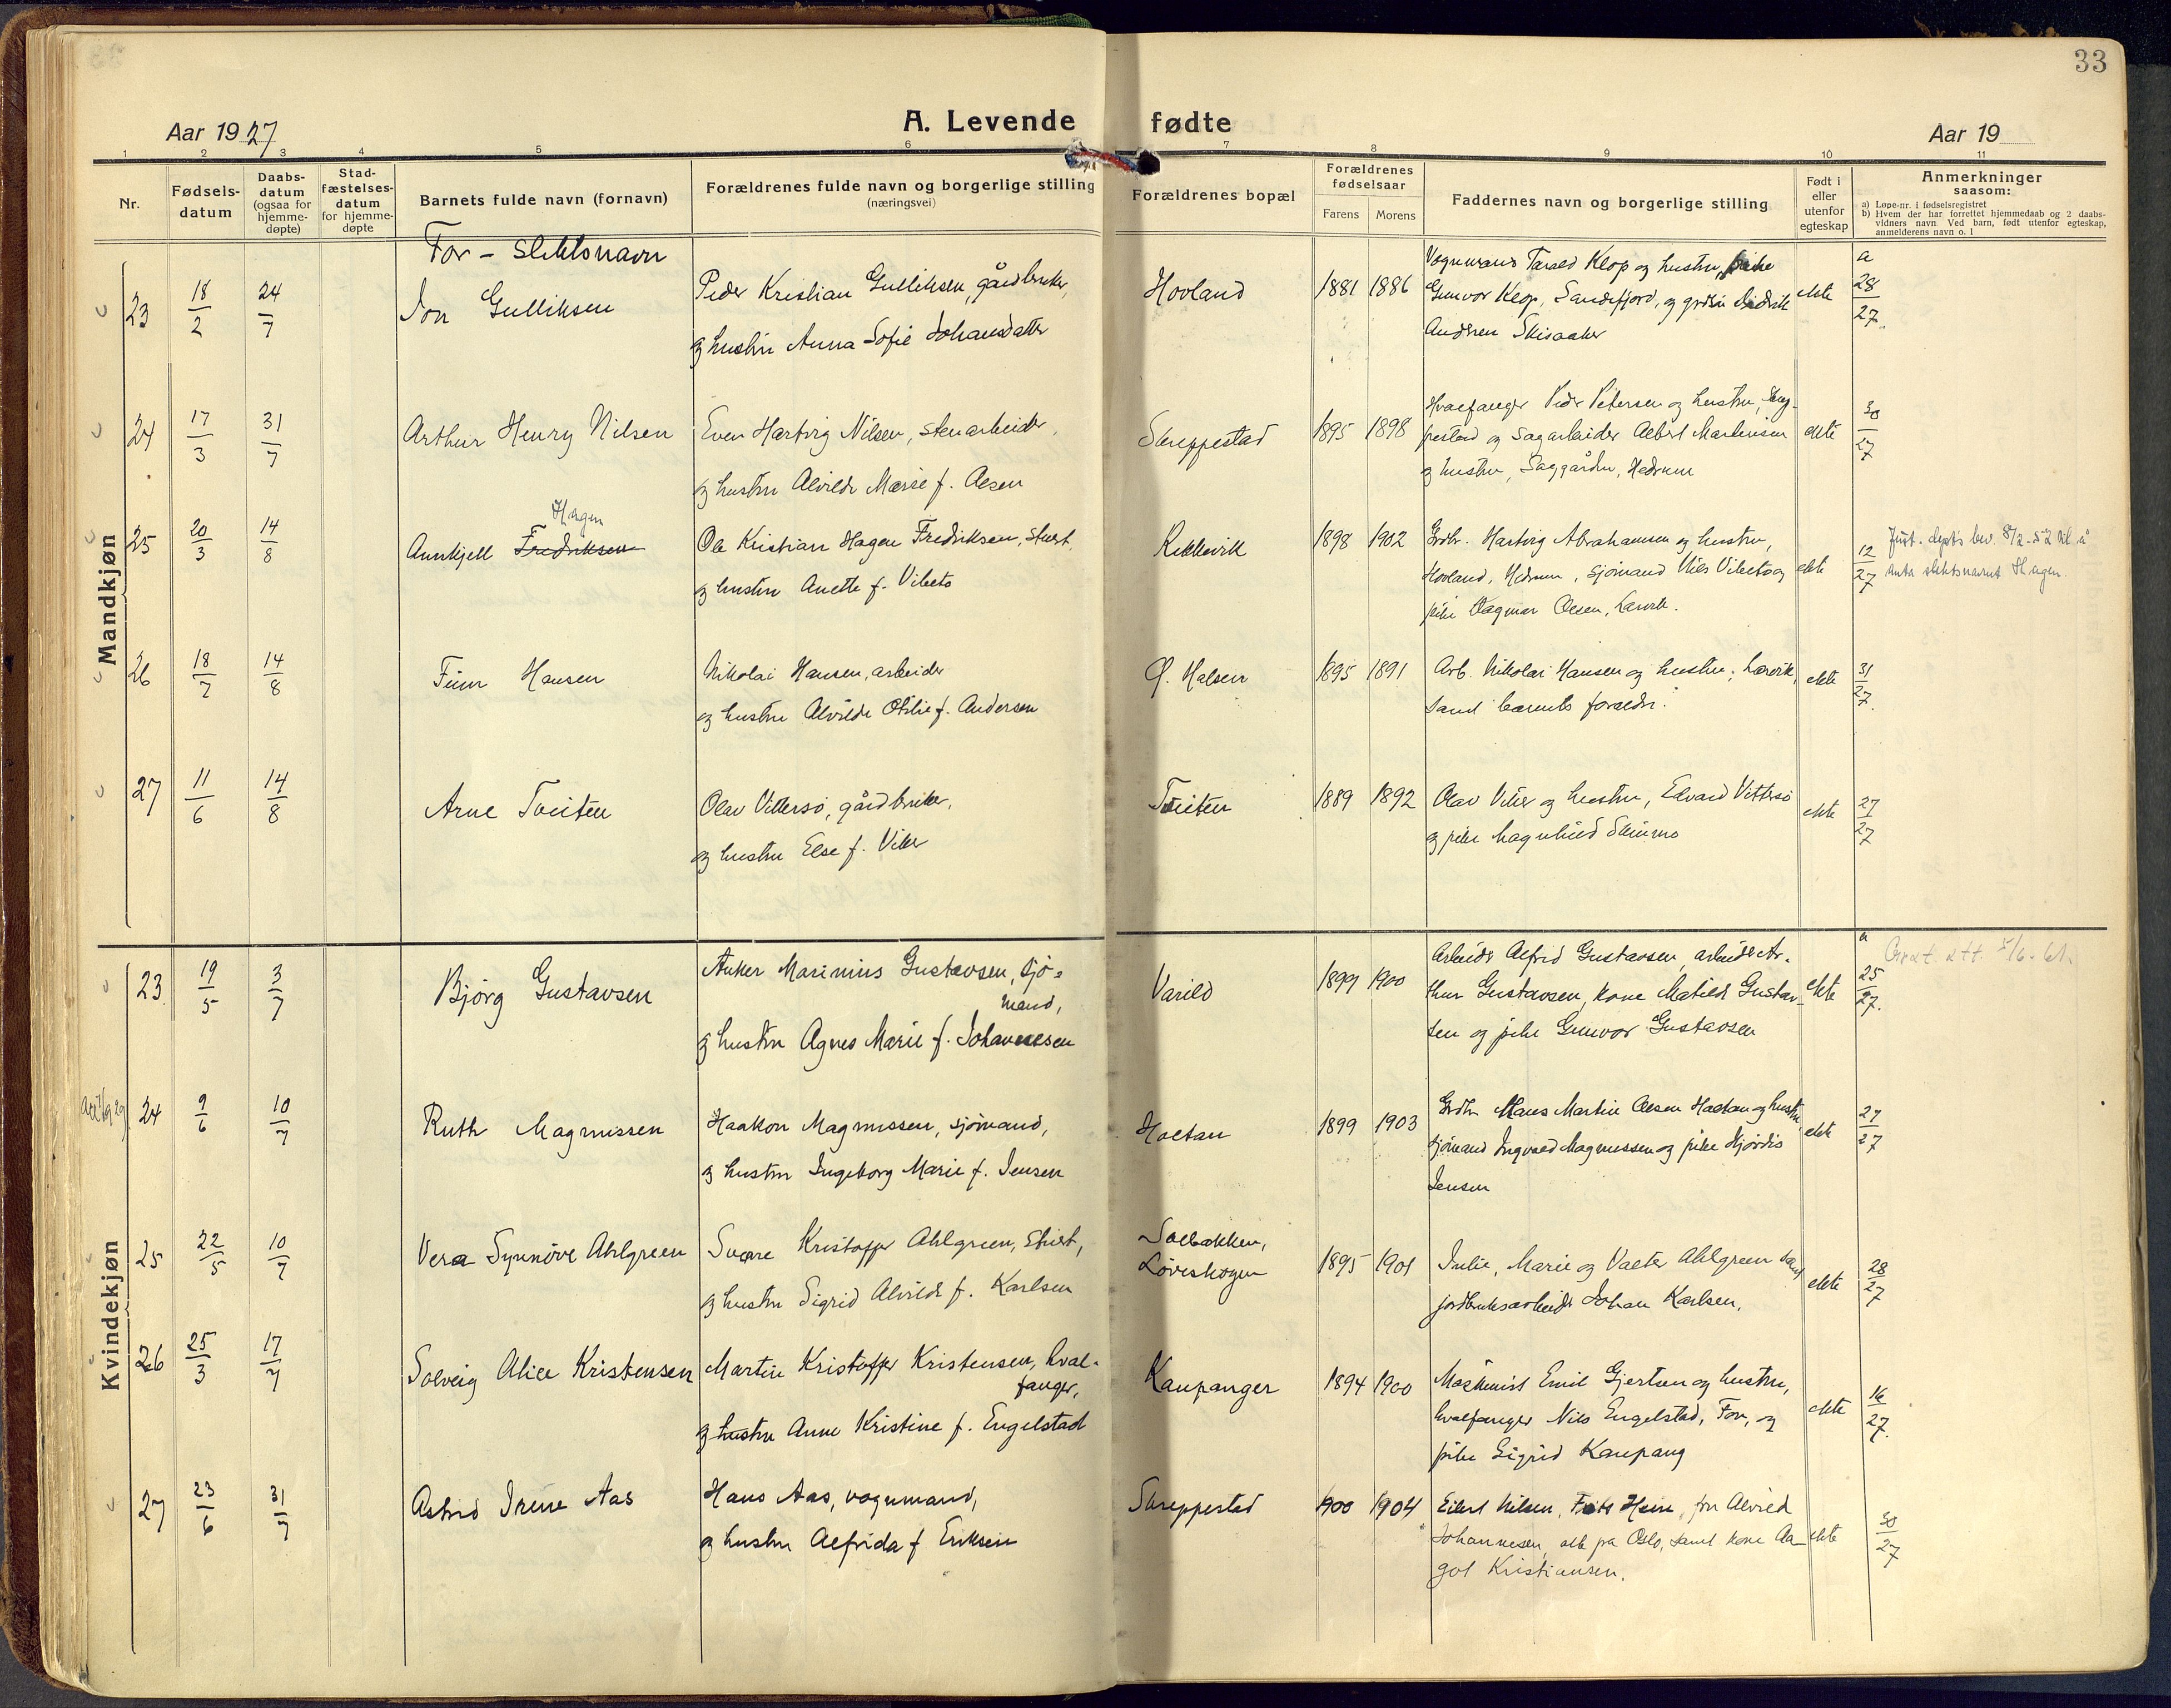 33
Aar 1927
A. Levende fødte
Aar 19
1 2 3 4 5 6 7 8 9 10 11
Nr.
Fødsels-
datum
Daabs-
datum
(ogsaa for
hjemme-
døpte)
Stad-
fæstelses-
datum
for hjemme-
døpte
Barnets fulde navn (fornavn)
Forældrenes fulde navn og borgerlige stilling
(næringsvei)
Forældrenes bopæl
Forældrenes
fødselsaar
Farens Morens
Faddernes navn og borgerlige stilling
Født i
eller
utenfor
egteskap
Anmerkninger
saasom:
a) Løpe-nr. i fødselsregistret
b) Hvem der har forrettet hjemmedaab og 2 daabs-
vidners navn. Ved barn, født utenfor egteskap,
anmelderens navn o. l
For - slektsnavn
Mandkjøn
23 18/2 24/7 Jon Gulliksen
Peder Kristian Gulliksen, gårdbruker,
og hustru Anna Sofie Johansdatter
Hovland 1881 1886
Vognmand Tarald Klop og hustru, pike
Gunvor Klop, Sandefjord, og Didrik
Andersen Skisaaker
ekte a 28/27.
24 17/3 31/7 Arthur Henry Nilsen
Even Hartvig Nilsen, stenarbeider,
og hustru Alvilde Marie f. Olsen
Skreppestad 1895 1898
Hvalfanger Peder Petersen og hustru, Skrep-
pestad og sagarbeider Albert Martinsen
og hustru, Saggården, Hedrum
ekte 30/27
25 20/3 14/8 Annkjell Fredriksen Hagen
Ole Kristian Hagen Fredriksen, stuert,
og hustru Anette f. Vibeto
Rekkevik 1898 1902
Grdbr. Hartvig Abrahamsen og hustru,
Hovland, Hedrum, sjømand Nils Vibeto og
pike Dagmar Olsen, Larvik.
ekte 12/27
Just. depts bev. 8/2-52 til å
anta slektsnavnet Hagen.
26 18/7 14/8 Finn Hansen
Nikolai Hansen, arbeider
og hustru Alvilde Otilie f. Andersen
Ø. Halsen 1895 1891
Arb. Nikolai Hansen og hustru, Larvik,
samt barnets foreldre.
ekte 31/27.
27 11/6 14/8 Arne Tveiten
Olav Vittersø, gårdbruker,
og hustru Else f. Viker
Tveiten 1889 1892
Olav Viker og hustru, Edvard Vittersø
og pike Magnhild Skinmo
ekte 27/27
Kvindekjøn
23 19/5 3/7 Bjørg Gustavsen
Anker Marinius Gustavsen, sjø-
mand,
og hustru Agnes Marie f. Johannessen
Varild 1899 1900
Arbeider Alfred Gustavsen, arbeider Ar-
thur Gustavsen, kone Matilde Gustav-
sen og pike Gunvor Gustavsen
ekte a 25/27.
att. 5/6-61.
24 9/6 10/7 Ruth Magnussen
Haakon Magnussen, sjømand,
og hustru Ingeborg Marie f. Jensen
Holtan 1899 1903
Grdbr. Hans Martin Olsen Holtan og hustru,
sjømand Ingvald Magnussen og pike Hjørdis
Jensen
ekte 27/27
25 22/5 10/7 Vera Synnøve Ahlgreen
Sverre Kristoffer Ahlgreen, stuert,
og hustru Sigrid Alvilde f. Karlsen
Solbakken,
Løveskogen
1895 1901
Julie, Marie og Valter Ahlgreen samt
jordbruksarbeider Johan Karlsen.
ekte 28/27
26 25/3 17/7 Solveig Alice Kristensen
Martin Kristoffer Kristensen, hval-
fanger,
og hustru Anne Kristine f. Engelstad
Kaupanger 1894 1900
Maskinist Emil Gjertsen og hustru,
hvalfanger Nils Engelstad, Tor, og
pike Sigrid Kaupang
ekte 16/27.
27 23/6 31/7 Astrid Irene Aas
Hans Aas, vognmand,
og hustru Alfrida f Eriksen
Skreppestad 1900 1904
Eilert Nilsen, fru Alvild
Johannesen, alle på Oslo, samt kone Aa-
got Kristiansen.
ekte 30/27